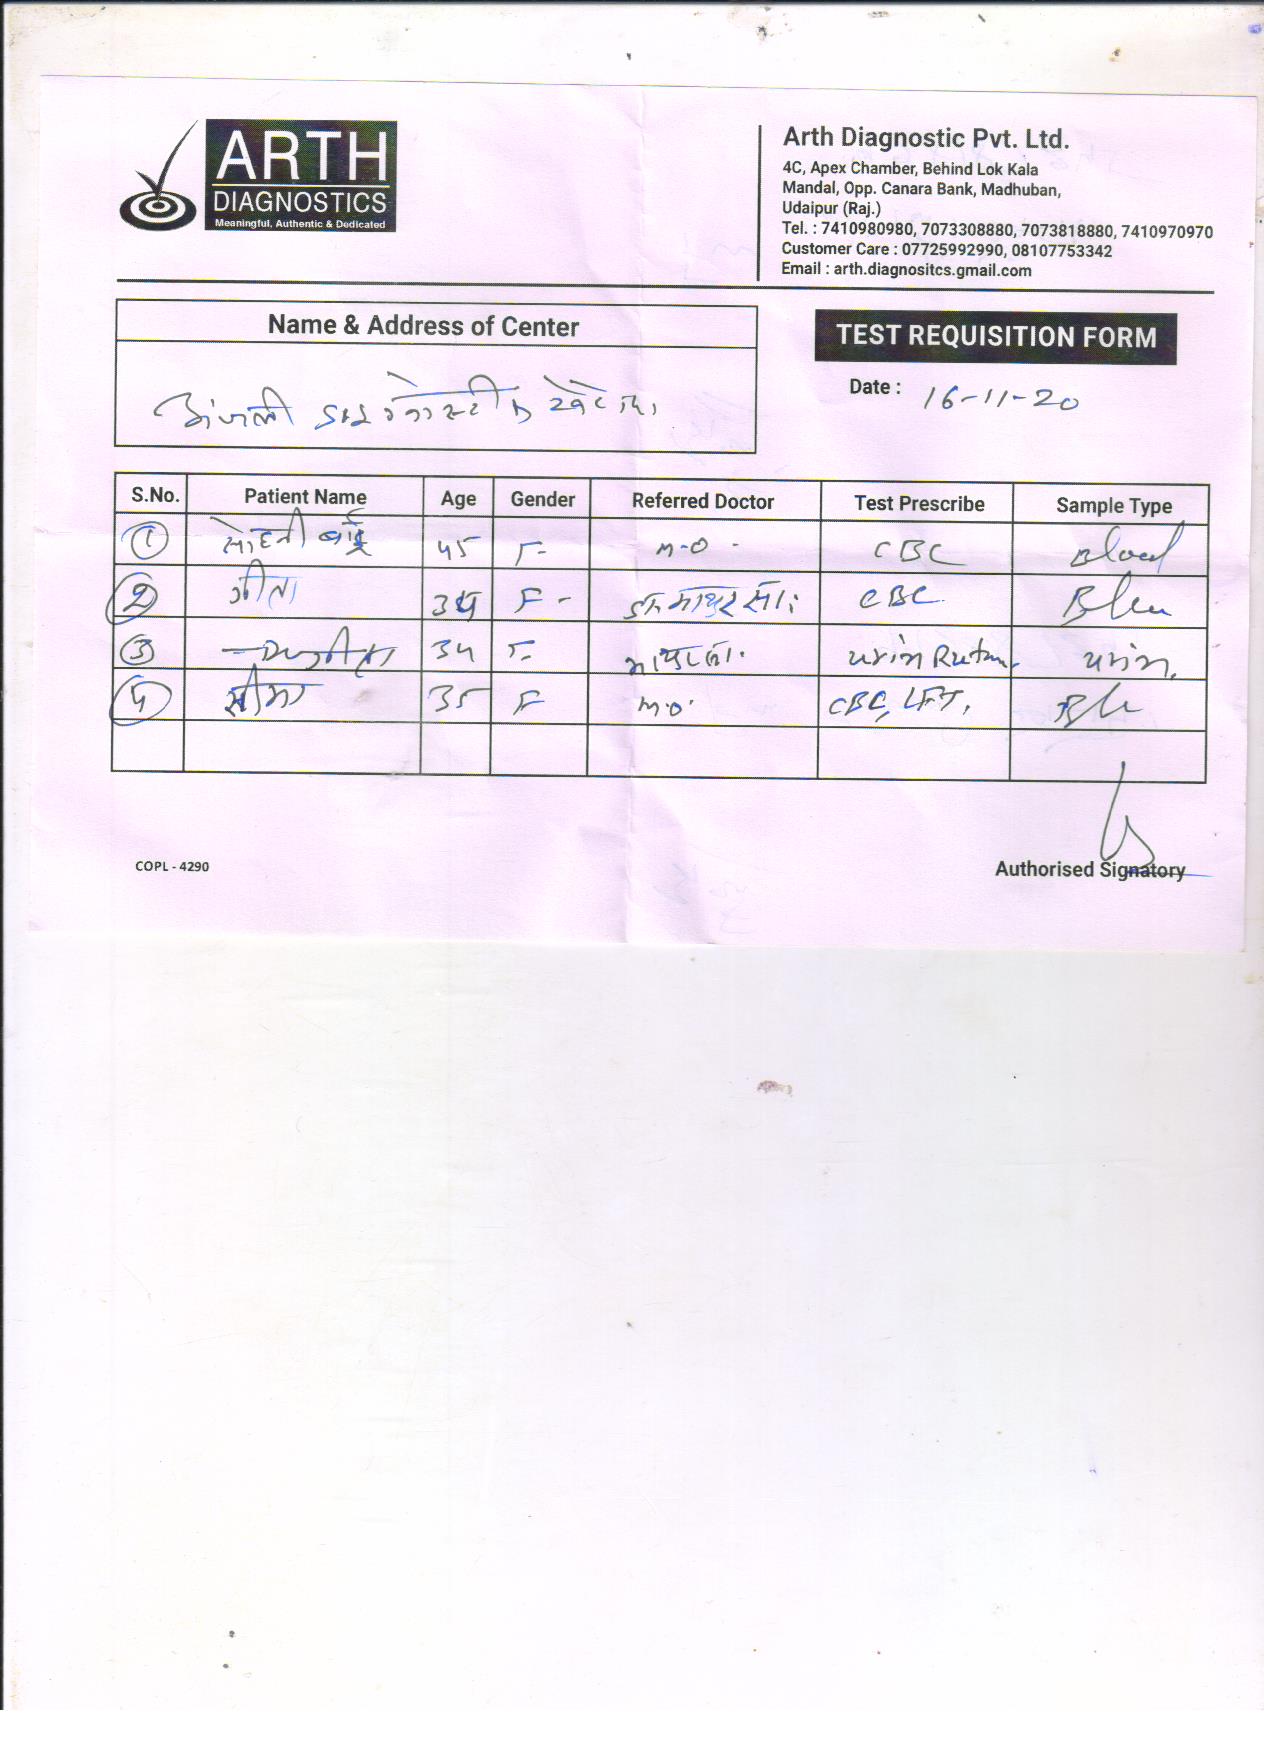 ARTH
DIAGNOSTICS
Meaningful, Authentic & Dedicated
Arth Diagnostic Pvt. Ltd.
4C, Apex Chamber, Behind Lok Kala
Mandal, Opp. Canara Bank, Madhuban,
Udaipur (Raj.)
Tel. : 7410980980, 7073308880, 7073818880, 7410970970
Customer Care : 07725992990, 08107753342
Email : arth.diagnositcs.gmail.com
Name & Address of Center
TEST REQUISITION FORM
Date : 16-11-20
S.No. Patient Name Age Gender Referred Doctor Test Prescribe Sample Type
1 45 F M.O CBC Blood
2 F CBC
3 F
4 35 F M.O. CBC, LFT,
COPL - 4290
Authorised Signatory